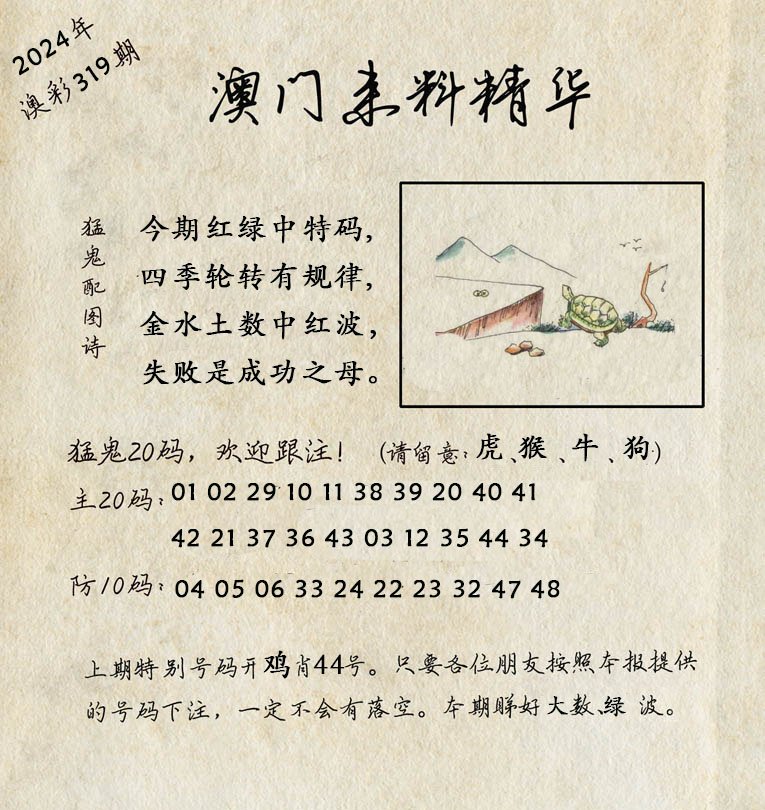 2024年
澳彩319期
澳门来料精华
猛鬼配图诗
今期红绿中特码,
四季轮转有规律,
金水土数中红波,
失败是成功之母。
猛鬼20码，欢迎跟注！（请留意：虎、猴、牛、狗）
主20码：01 02 29 10 11 38 39 20 40 41
42 21 37 36 43 03 12 35 44 34
防10码：04 05 06 33 24 22 23 32 47 48
上期特别号码开鸡肖44号。只要各位朋友按照本报提供
的号码下注，一定不会有落空。本期睇好大数、绿 波。